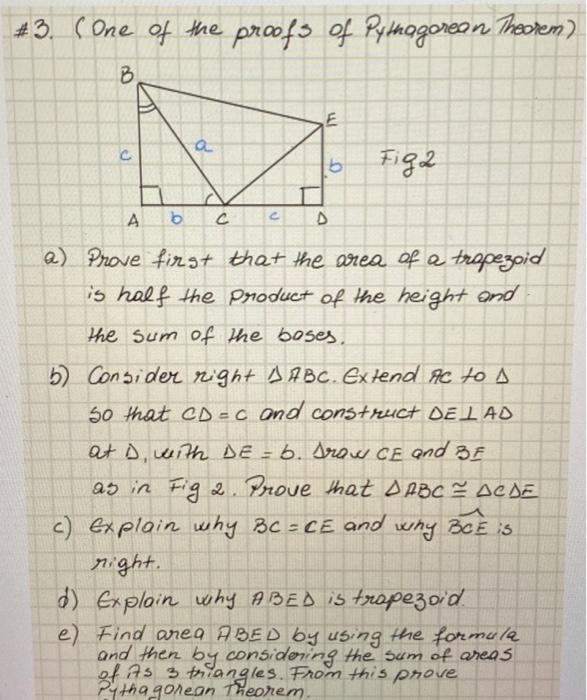 #3. (One of the proofs of Pythagorean Theorem)
B
E
c
a
b
Fig 2
A b C c D
a) Prove first that the area of a trapezoid
is half the product of the height and
the sum of the bases.
b) Consider right ΔABC. Extend AC to D
so that CD = c and construct DE⊥AD
at D, with DE = b. Draw CE and BE
as in Fig 2. Prove that ΔABC ≅ ΔCDE
c) Explain why BC = CE and why BCE is
right.
d) Explain why ABED is trapezoid.
e) Find area ABED by using the formula
and then by considering the sum of areas
of its 3 triangles. From this prove
Pythagorean Theorem.